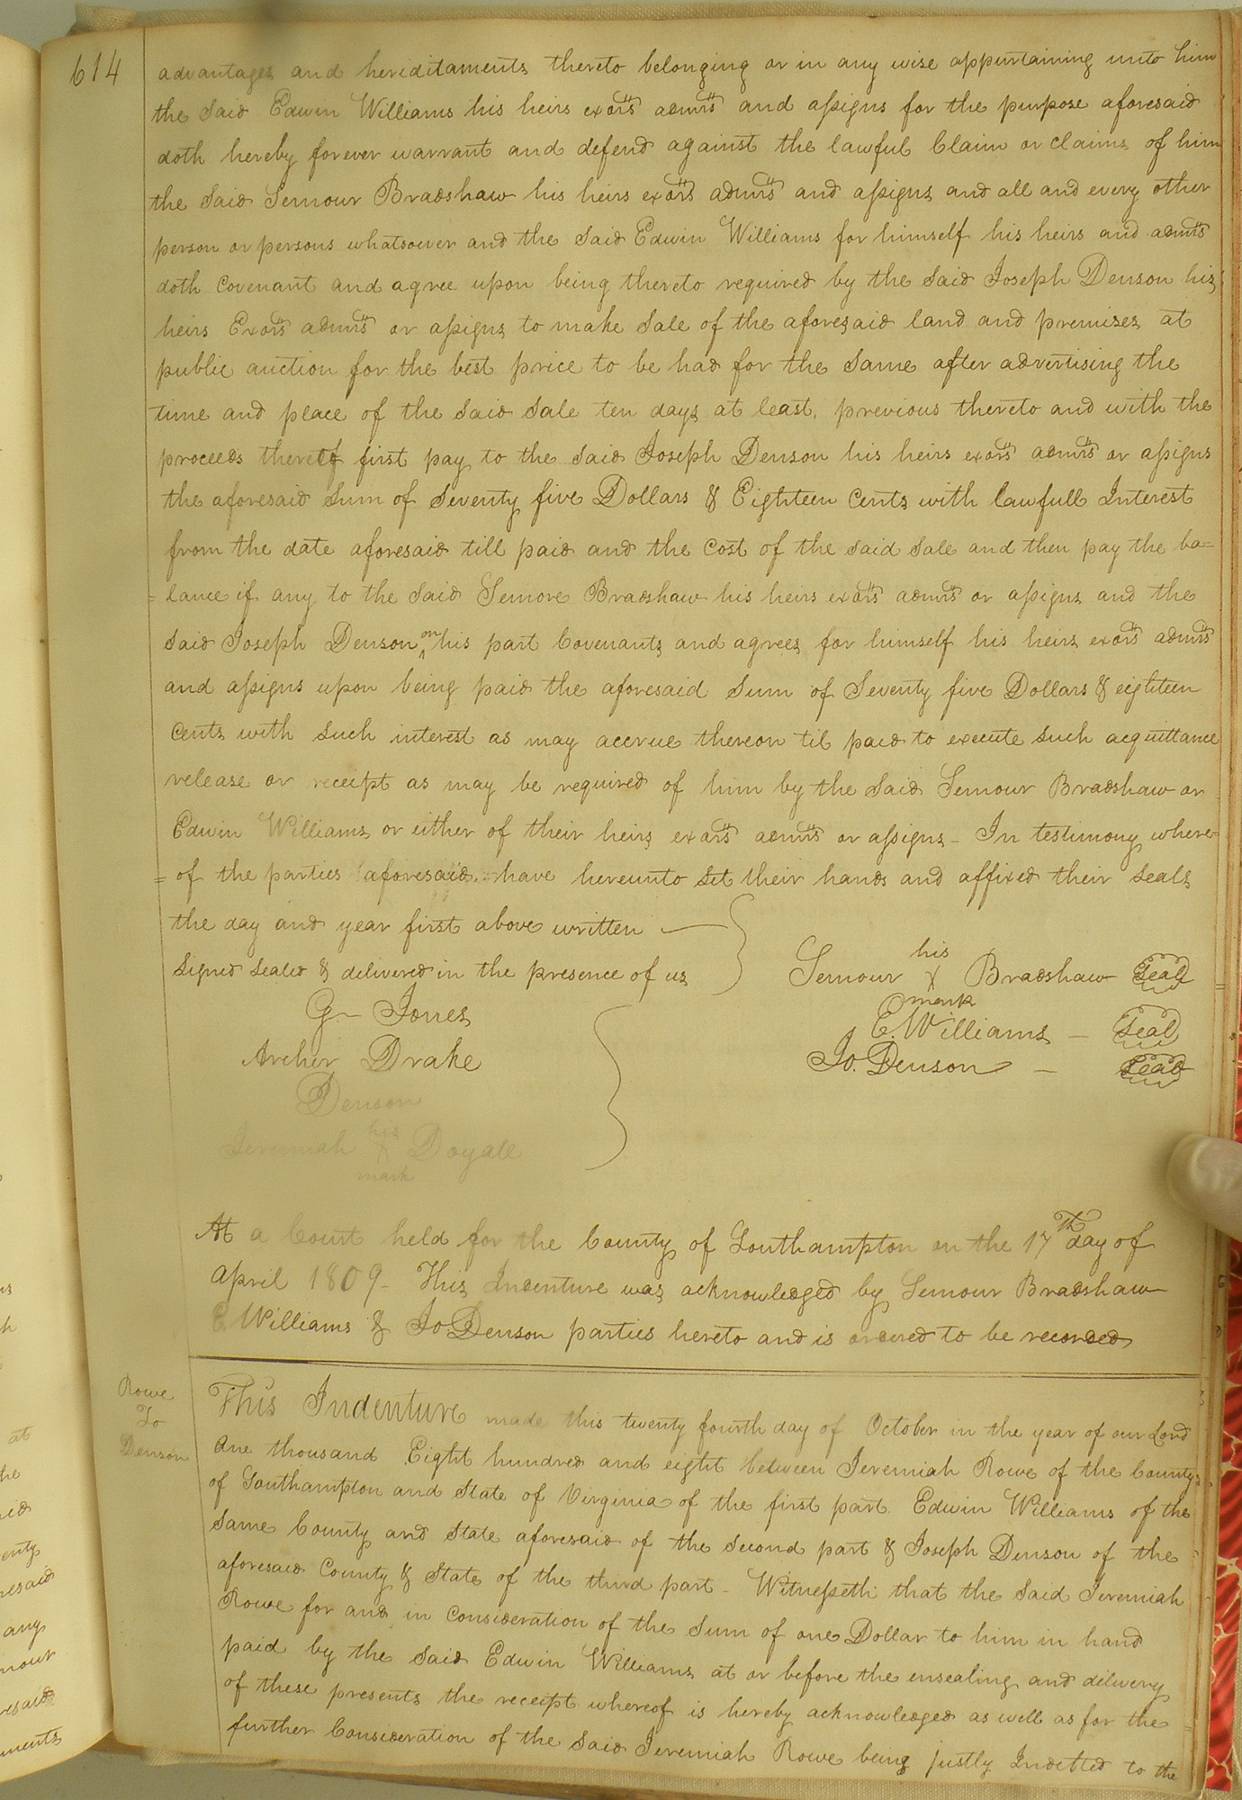 614
advantages and hereditaments thereto belonging or in any wise appurtaining unto him
the Said Edwin Williams his heirs exors admrs and assigns for the purpose aforesaid
doth hereby forever warrant and defend against the lawful Claim or claims of him
the Said Semour Bradshaw his heirs exors admrs and assigns and all and every other
person or persons whatsoever and the Said Edwin Williams for himself his heirs and admrs
doth Covenant and agree upon being thereto required by the Said Joseph Denson his
heirs Exors admrs or assigns to make Sale of the aforesaid land and premises at
public auction for the best price to be had for the Same after advertising the
time and place of the Said Sale ten days at least, previous thereto and with the
proceeds thereof first pay to the Said Joseph Denson his heirs exors admrs or assigns
the aforesaid Sum of Seventy five Dollars & Eighteen Cents with lawfull Interest
from the date aforesaid till paid and the Cost of the Said Sale and then pay the ba=
=lance if any to the Said Semore Bradshaw his heirs exors admrs or assigns and the
Said Joseph Denson on his part Covenants and agrees for himself his heirs exors admrs
and assigns upon being paid the aforesaid Sum of Seventy five Dollars & eighteen
Cents with Such interest as may accrue thereon til paid to execute Such acquittance
release or receipt as may be required of him by the Said Semour Bradshaw or
Edwin Williams or either of their heirs exors admrs or assigns - In testimony where=
=of the parties aforesaid have hereunto Set their hands and affixed their Seals
the day and year first above written
Signed Sealed & delivered in the presence of us
G- Jones
Archer Drake
Denson
Jeremiah his X mark Doyall
Semour his X mark Bradshaw Seal
E. Williams - Seal
Jo. Denson - Seal
At a Court held for the County of Southampton on the 17th day of
April 1809 - This Indenture was acknowledged by Semour Bradshaw
E Williams & Jo Denson parties hereto and is ordered to be recorded
Rowe
To
Denson
This Indenture made this twenty fourth day of October in the year of our Lord
One thousand Eight hundred and eight between Jeremiah Rowe of the County
of Southampton and State of Virginia of the first part Edwin Williams of the
Same County and State aforesaid of the Second part & Joseph Denson of the
aforesaid County & State of the third part - Witnesseth that the Said Jeremiah
Rowe for and in Consideration of the Sum of one Dollar to him in hand
paid by the Said Edwin Williams at or before the ensealing and delivery
of these presents the receipt whereof is hereby acknowledged as well as for the
further Consideration of the Said Jeremiah Rowe being justly Indetted to the